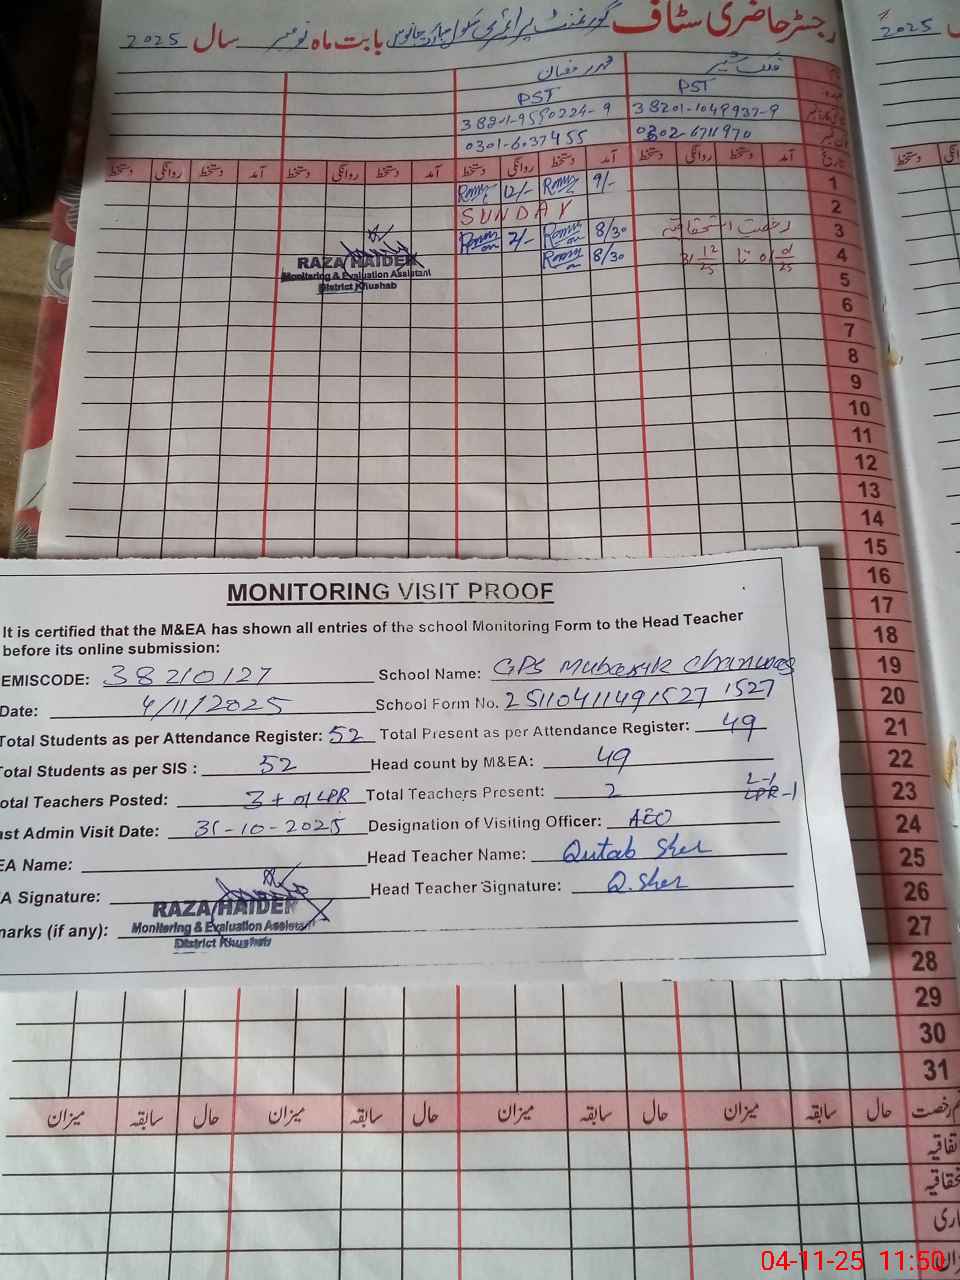 رجسٹر حاضری سٹاف گورنمنٹ پرائمری سکول بابت ماہ نومبر سال 2025
2025
محمد رمضان
PST PST
38201-1049937-9
0301-6037455 0302-6711970
آمد دستخط روانگی دستخط آمد دستخط روانگی دستخط آمد دستخط روانگی دستخط آمد دستخط روانگی دستخط تاریخ
9/- 12/- 1
SUNDAY 2
رخصت استحقاقیہ 8/30 2/- 3
8/30 4
RAZA HAIDER
Monitoring & Evaluation Assistant
District Khushab
5
6
7
8
9
10
11
12
13
14
15
16
17
18
19
20
21
22
23
24
25
26
27
28
29
30
31
MONITORING VISIT PROOF
It is certified that the M&EA has shown all entries of the school Monitoring Form to the Head Teacher
before its online submission:
EMISCODE: 38210127 School Name: GPS Mubarik
Date: 4/11/2025 School Form No. 25110411491527 1527
Total Students as per Attendance Register: 52 Total Present as per Attendance Register: 49
Total Students as per SIS : 52 Head count by M&EA: 49
otal Teachers Posted: 3 + 01 LPR Total Teachers Present: 2 L-1 LPR-1
ast Admin Visit Date: 31-10-2025 Designation of Visiting Officer: AEO
EA Name: Head Teacher Name: Qutab Sher
A Signature: Head Teacher Signature: Q.Sher
RAZA HAIDER
Monitoring & Evaluation Assistant
District Khushab
marks (if any):
رخصت حال سابقہ میزان حال سابقہ میزان حال سابقہ میزان حال سابقہ میزان
04-11-25 11:50